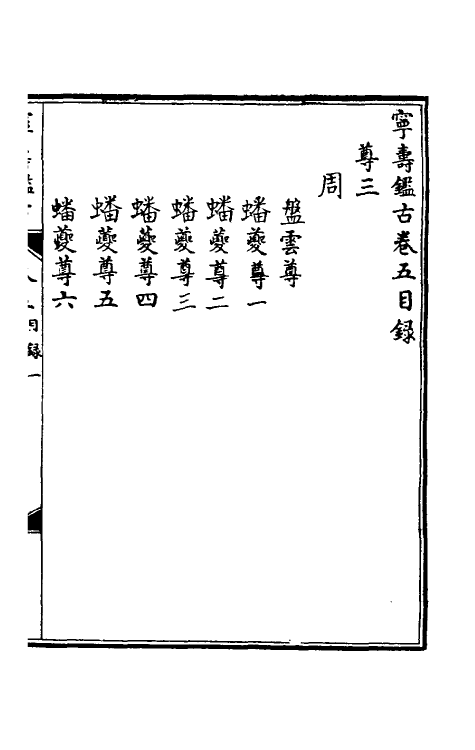 寧壽鑑古卷五目録
尊三
周
盤雲尊
蟠夔尊一
蟠夔尊二
蟠夔尊三
蟠夔尊四
蟠夔尊五
蟠夔尊六
目録一